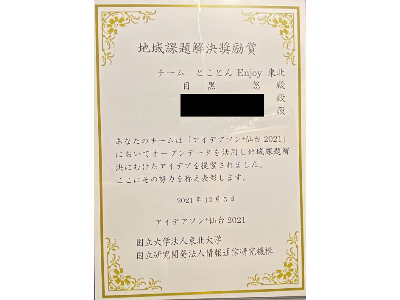 地域課題解決奨励賞
チーム:とことん Enjoy 東北
目 黒 悠 殿
殿
殿
あなたのチームは「アイデアソン+仙台 2021」
においてオープンデータを活用し地域課題解
決にむけたアイデアを提案されました。
ここにその努力を称え表彰します。
2021年12月5日
アイデアソン+仙台 2021
国立大学法人東北大学
国立研究開発法人情報通信研究機構